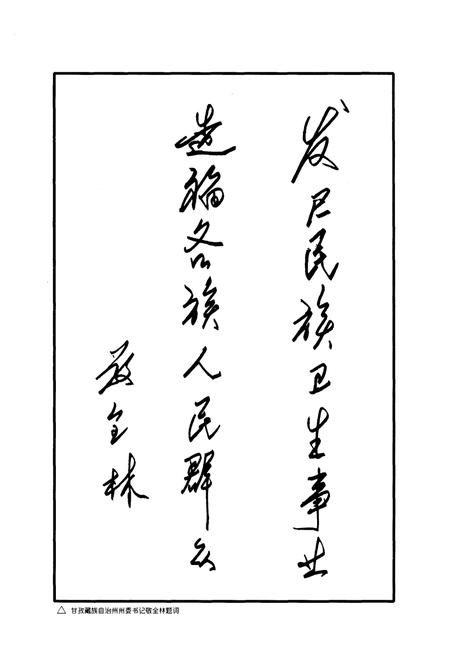 发尸民族卫生事业
造福各族人民群众
敬全林
△ 甘孜藏族自治州州委书记敬全林题词